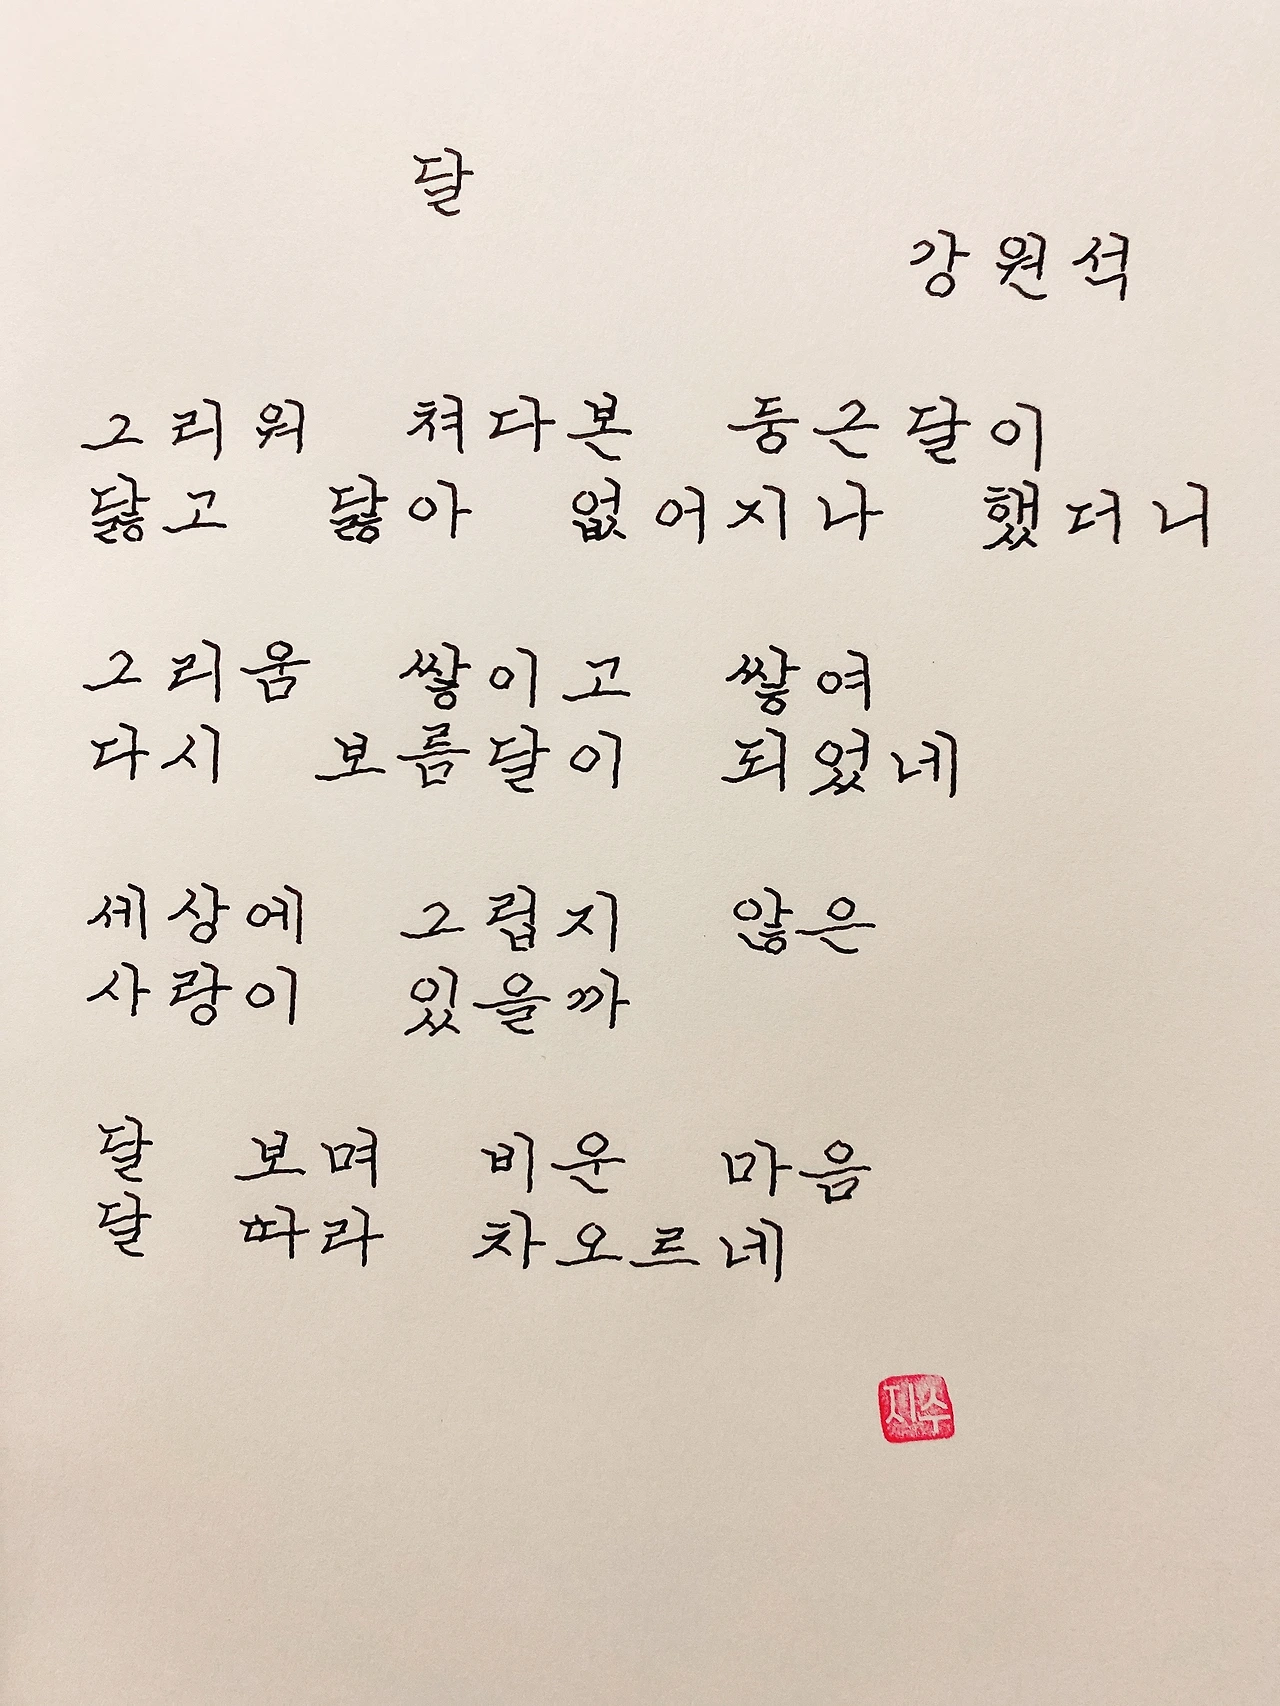 달
강원석
그리워 쳐다본 둥근달이
닳고 닳아 없어지나 했더니
그리움 쌓이고 쌓여
다시 보름달이 되었네
세상에 그립지 않은
사랑이 있을까
달 보며 비운 마음
달 따라 차오르네
지수